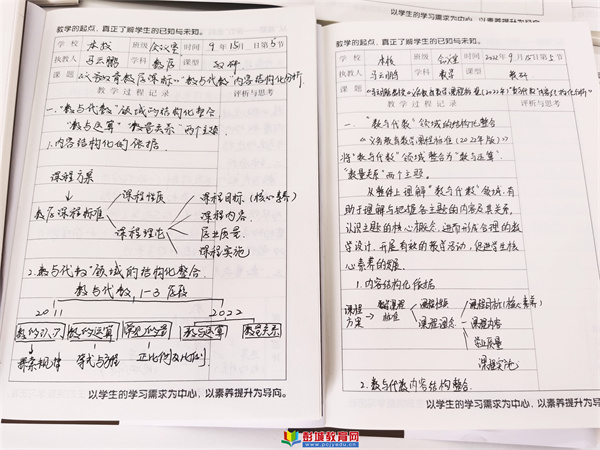 以学生的学习需求为中心，以素养提升为导向。
教学的起点，真正了解学生的已知与未知。
学 校 本校 班级 会议室 时间 9 年 15 月 日第 5 节
执教人 马云鹏 学科 数学 课型 教研
课 题 《义务教育数学课标》"数与代数"内容结构化分析
教 学 过 程 记 录 评析与思考
一."数与代数"领域的结构化整合
"数与运算""数量关系"两个主题
1.内容结构化的依据
课程方案
数学课程标准
课程性质
课程理念
课程目标(核心素养)
课程内容
学业质量
课程实施
2.数与代数"领域的结构化整合
数与代数,1-3学段
2011 2022
数的认识 数的运算 常见的量 数与运算 数量关系
探索规律 等式与方程 正比例反比例
以学生的学习需求为中心，以素养提升为导向。
教学的起点，真正了解学生的已知与未知。
学 校 本校 班级 会议室 时间 2022 年 9 月 15 日第 5 节
执教人 马云鹏 学科 数学 课型 教研
教 学 过 程 记 录 评析与思考
一."数与代数"领域的结构化整合
《义务教育数学课程标准(2022年版)》
将"数与代数"领域整合为"数与运算"
"数量关系"两个主题。
从整体上理解"数与代数"领域,有
助于理解与把握各主题的内容及其关系,
认识主题的核心概念,进而形成合理的教
学设计,开展有效的教学活动,促进学生核
心素养的发展.
1.内容结构化依据
课程方案
数学课程标准
课程性质
课程理念
课程目标(核心素养)
课程内容
学业质量
课程实施
2.数与代数内容结构整合.
以学生的学习需求为中心，以素养提升为导
彭城教育网
www.pcjyedu.cn